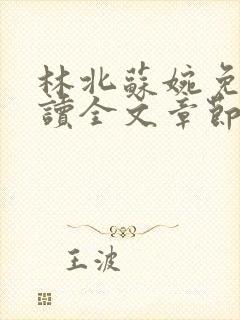 林北蘇婉免
讀全文章節
王波